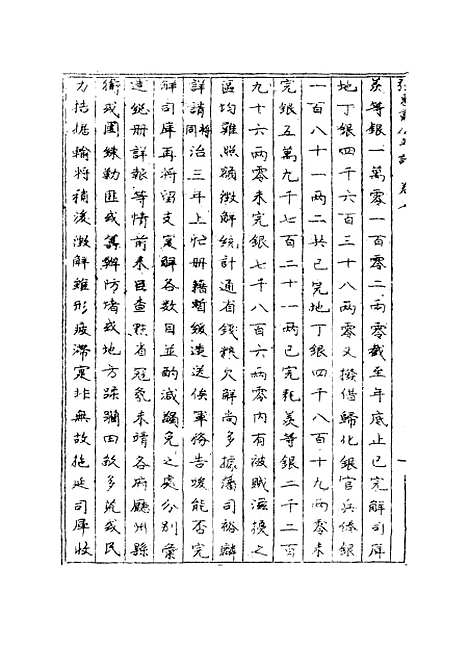 羨等銀一萬零一百零二兩零截至年底止已完解司庫
地丁銀四千六百三十八兩零又撥借歸化銀官兵俸銀
一百八十一兩二共已完地丁銀四千八百一十九兩零未
完銀五萬九千七百二十一兩已完耗羨等銀二千二百
九十六兩零未完銀七千八百六兩零內有被賊滋擾之
區均難照額徵解統計通省錢糧欠解尚多據藩司裕麟
詳請將同治三年上忙冊籍暫緩造送俟軍務告竣能否完
解司庫再將留支實解各數目並酌減蠲免之處分別彙
造總冊詳報等情前來臣查秩省冠氛未靖各府廳州縣
衛或團練勦匪或籌辦防堵或地方蹂躪田畝多荒或民
力拮据輸將稍後徵解雖形疲滯實非無故拖延司庫收